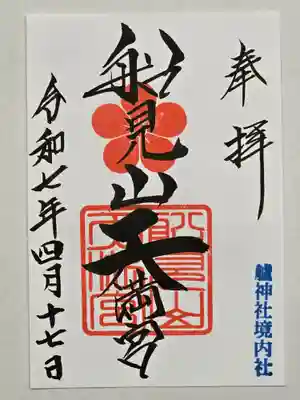 奉拝
艫神社境内社
船見山天満宮
令和七年四月十七日